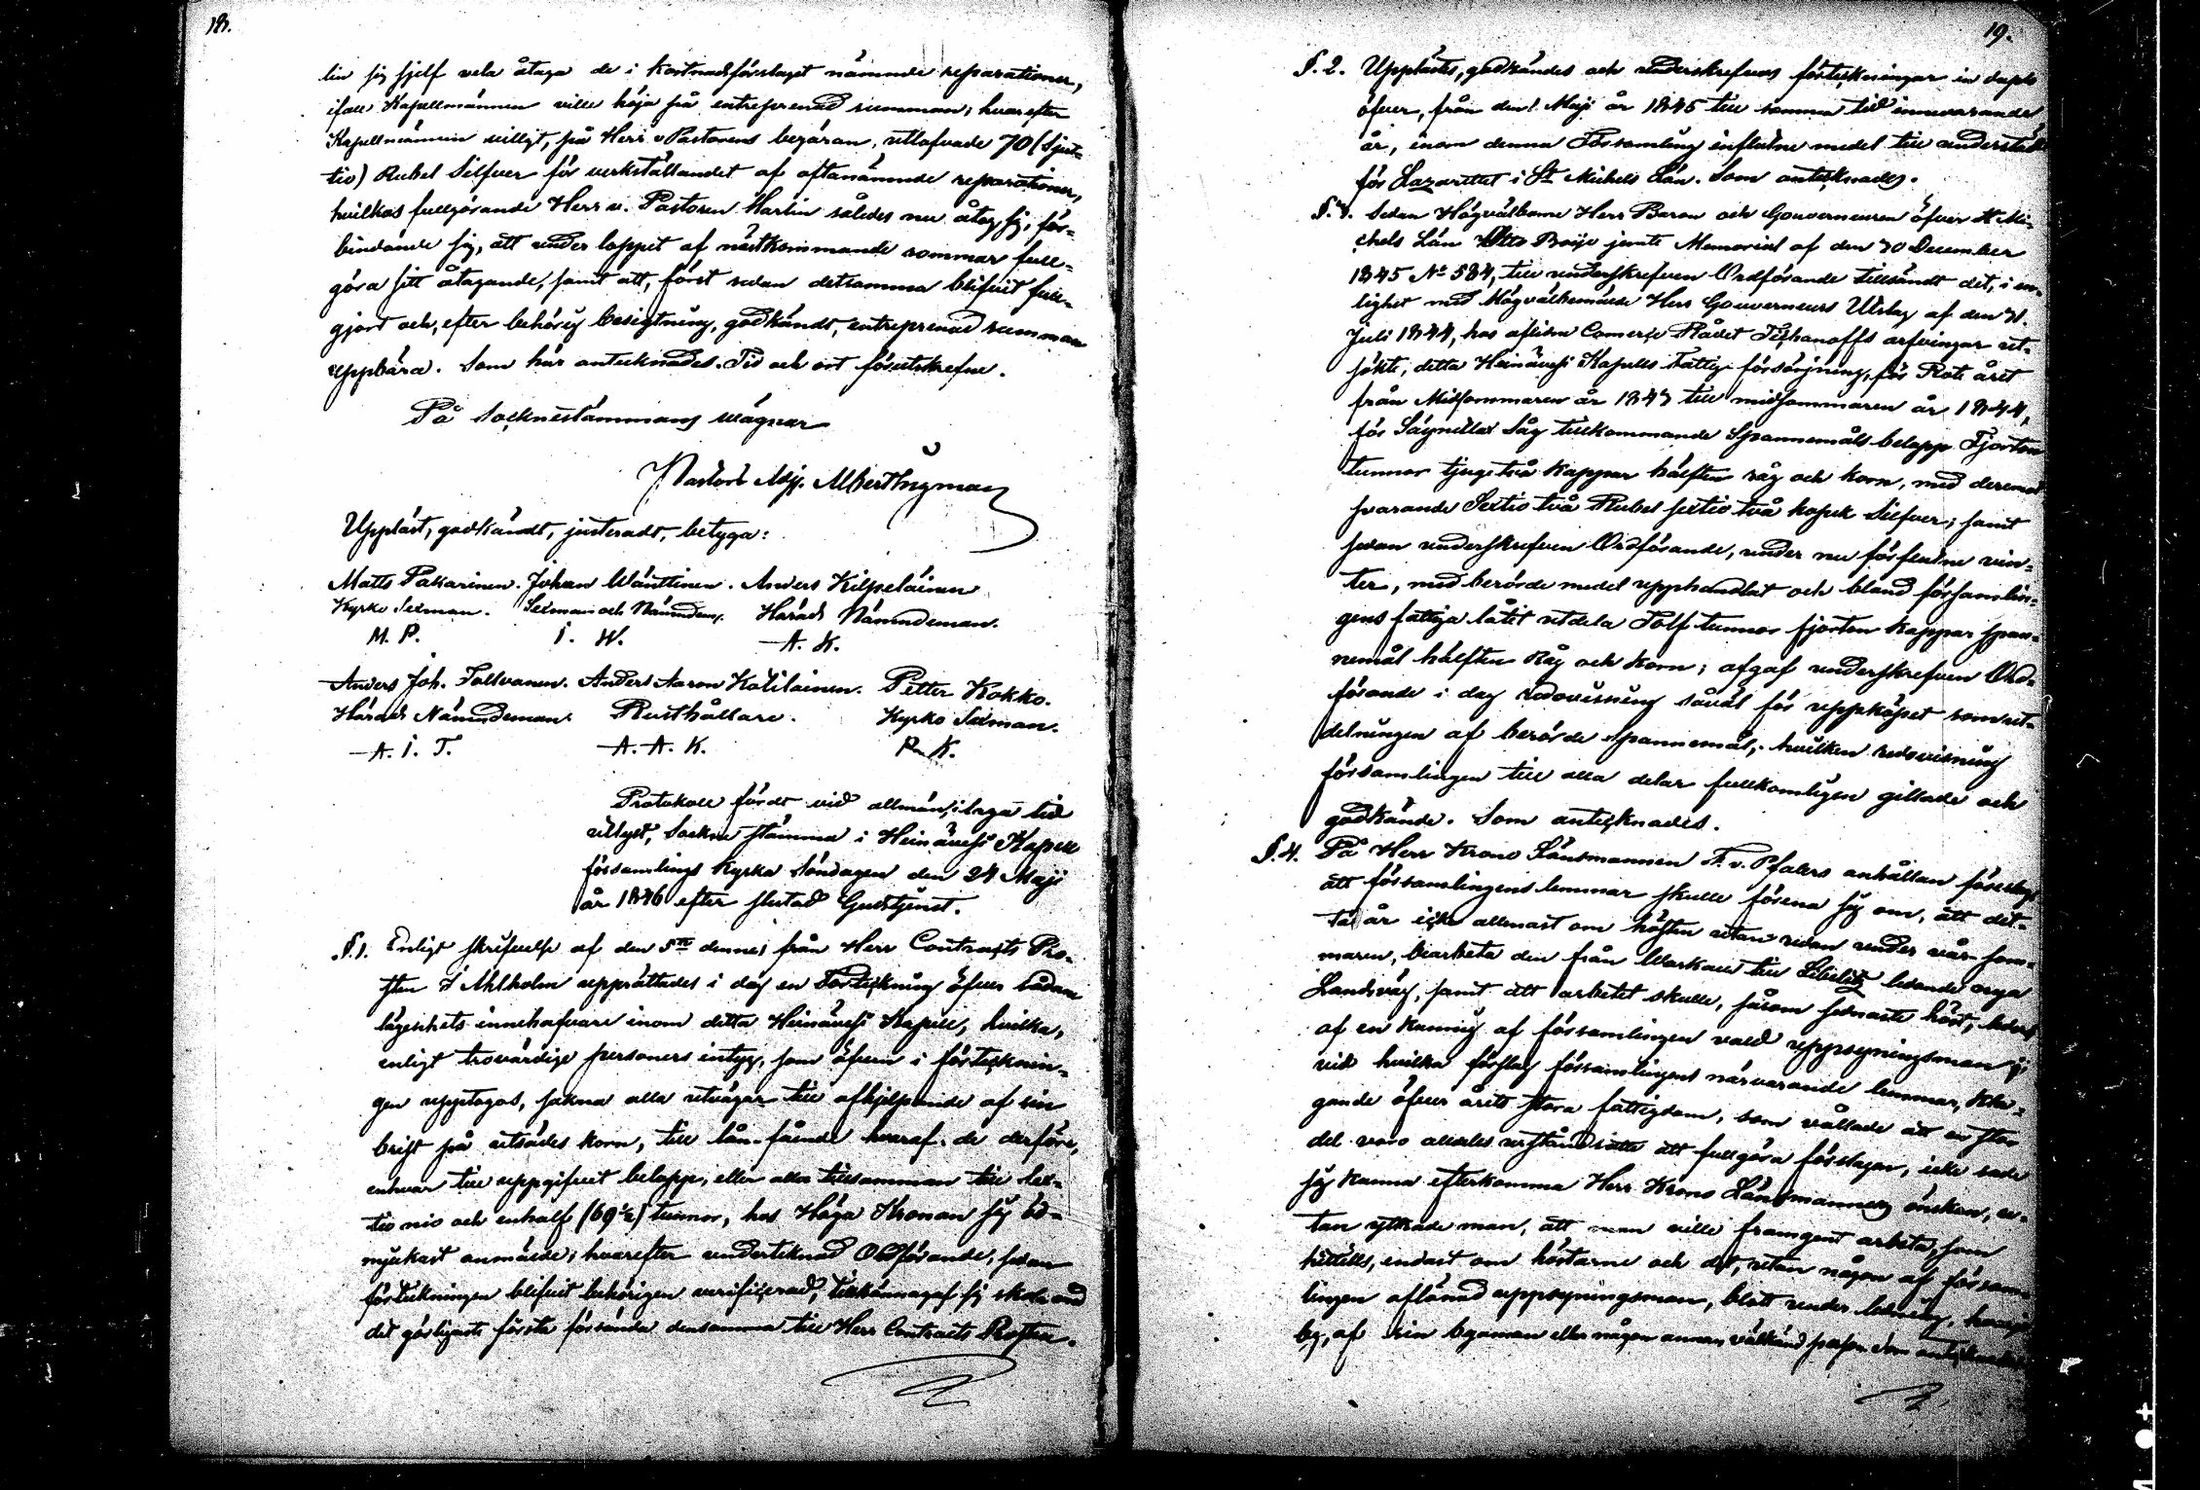 18.
lin sig sjelf vela åtaga de i Kostnadsförslaget nämnde reparationer,
ifall Kapellmännen ville höja på entreprenad summan; hvarefter
Kapellmännen villigt, på Herr v Pastorens begäran, utlofvade 70 (Sjut-
tio) Rubel Silfver för verkställandet af oftanämnde reparationer,
hvilkas fullgörande Herr v. Pastoren Martin således nu åtog sig, för-
bindande sig, att under loppet af nästkommande sommar full-
göra sitt åtagande, samt att, först sedan detsamma blifvit full-
gjort och, efter behörig besigtning, godkändt, entreprenad summan
uppbära. Som här antecknades. Tid och ort förutskrefne.
På Socknestämmans vägnar
Pastors Adj. Albert Ingman
Uppläst, godkändt, justeradt, betyga:
Matts Pakarinen. Johan Wänttinen. Anders Kilpeläinen
Kyrko Sexman. Sexman och Nämndem. Härads Nämndeman.
M. P. I. W. A. K.
Anders Joh. Tollvanen. Anders Aaron Katilainen. Petter Kokko.
Härads Nämndeman. Rusthållare. Kyrko Sexman.
A. I. T. A. A. K. P. K.
Protokoll fördt vid allmän, i laga tid
utlyst, Sockne stämma i Heinävesi Kapell
församlings Kyrka Söndagen den 24 Maji
år 1846 efter slutad Gudstjenst.
§.1. Enligt skrifvelse af den 5te dennes från Herr Contracts Pro-
sten Ahlholm upprättades i dag en Förteckning öfver sådane
lägenhets innehafvare inom detta Heinävesi Kapell, hvilka,
enligt trovärdige personers intyg, som äfven i förtecknin-
gen upptogos, sakna alla utvägar till afhjelpande af sin
brist på utsädes korn, till lån-fående hvaraf de derföre,
enhvar till uppgifvet belopp, eller alla tillsamman till Sex-
tio nio och enhalf (69 ½) tunnor, hos Höga Kronan sig öd-
mjukast anmälde; hvarefter undertecknad Ordförande, sedan
förteckningen blifvit behörigen verificerad, tillkännagaf sig skola med
det görligaste första försända densamma till Herr Contracts Prosten.
19.
§.2. Upplästes, godkändes och underskrefvos förteckningar in duplo
öfver, från den 1 Maji år 1845 till samma tid innevarande
år, inom denna Församling influtne medel till understöd
för Lazarettet i St Michels Län. Som antecknades.
§.3. Sedan Högvälborne Herr Baron och Gouverneuren öfver St Mi-
chels Län Otto Boije jemte Memorial af den 30 December
1845 No 584, till underskrefven Ordförande tillsändt det, i en-
lighet med Högvälbemälde Herr Gouverneurs Utslag af den 31.
Juli 1844, hos aflidne Comerse Rådet Tichanoffs arfvingar ut-
sökte, detta Heinävesi Kapells Fattig försörjning, för Rote året
från Midsommaren år 1843 till midsommaren år 1844,
för Säyneilax Såg tillkommande Spannemåls belopp Fjorton
tunnor tjugetvå Kappar hälften råg och korn, med deremot
svarande Sextio två Rubel sextio två kopek Silfver; samt
sedan underskrefven Ordförande, under nu förflutne vin-
ter, med berörde medel upphandlat och bland församlin-
gens fattiga låtit utdela Tolf tunnor fjorton Kappar span-
nemål hälften Råg och Korn; afgaf underskrefven Ord-
förande i dag redovisning såväl för uppköpet som ut-
delningen af berörde spannemål, hvilken redovisning
församlingen till alla delar fullkomligen gillade och
godkände. Som antecknades.
§.4. På Herr Krono Länsmannen F. v. Pfalers anhållan föreslogs
att församlingens lemmar skulle förena sig om, att det-
ta år icke allenast om hösten utan redan under vår-som-
maren, bearbeta den från Warkaus till Libelitz ledande nya
Landsväg, samt att arbetet skulle, såsom sednaste höst, ledas
af en Kunnig af församlingen vald uppsyningsman;
vid hvilka förslag församlingens närvarande lemmar, kla-
gande öfver årets stora fattigdom, som vållade att en stor
del voro alldeles urståndsatte att fullgöra förslagen, icke sade
sig kunna efterkomma Herr Krono Länsmannens önskan, u-
tan yttrade man, att man ville framgent arbeta, som
hittills, endast om höstarne och det, utan någon af försam-
lingen aflönad uppsyningsman, blott under ledning,
by, af sin byaman eller någon annan välkänd person. Som antecknades.